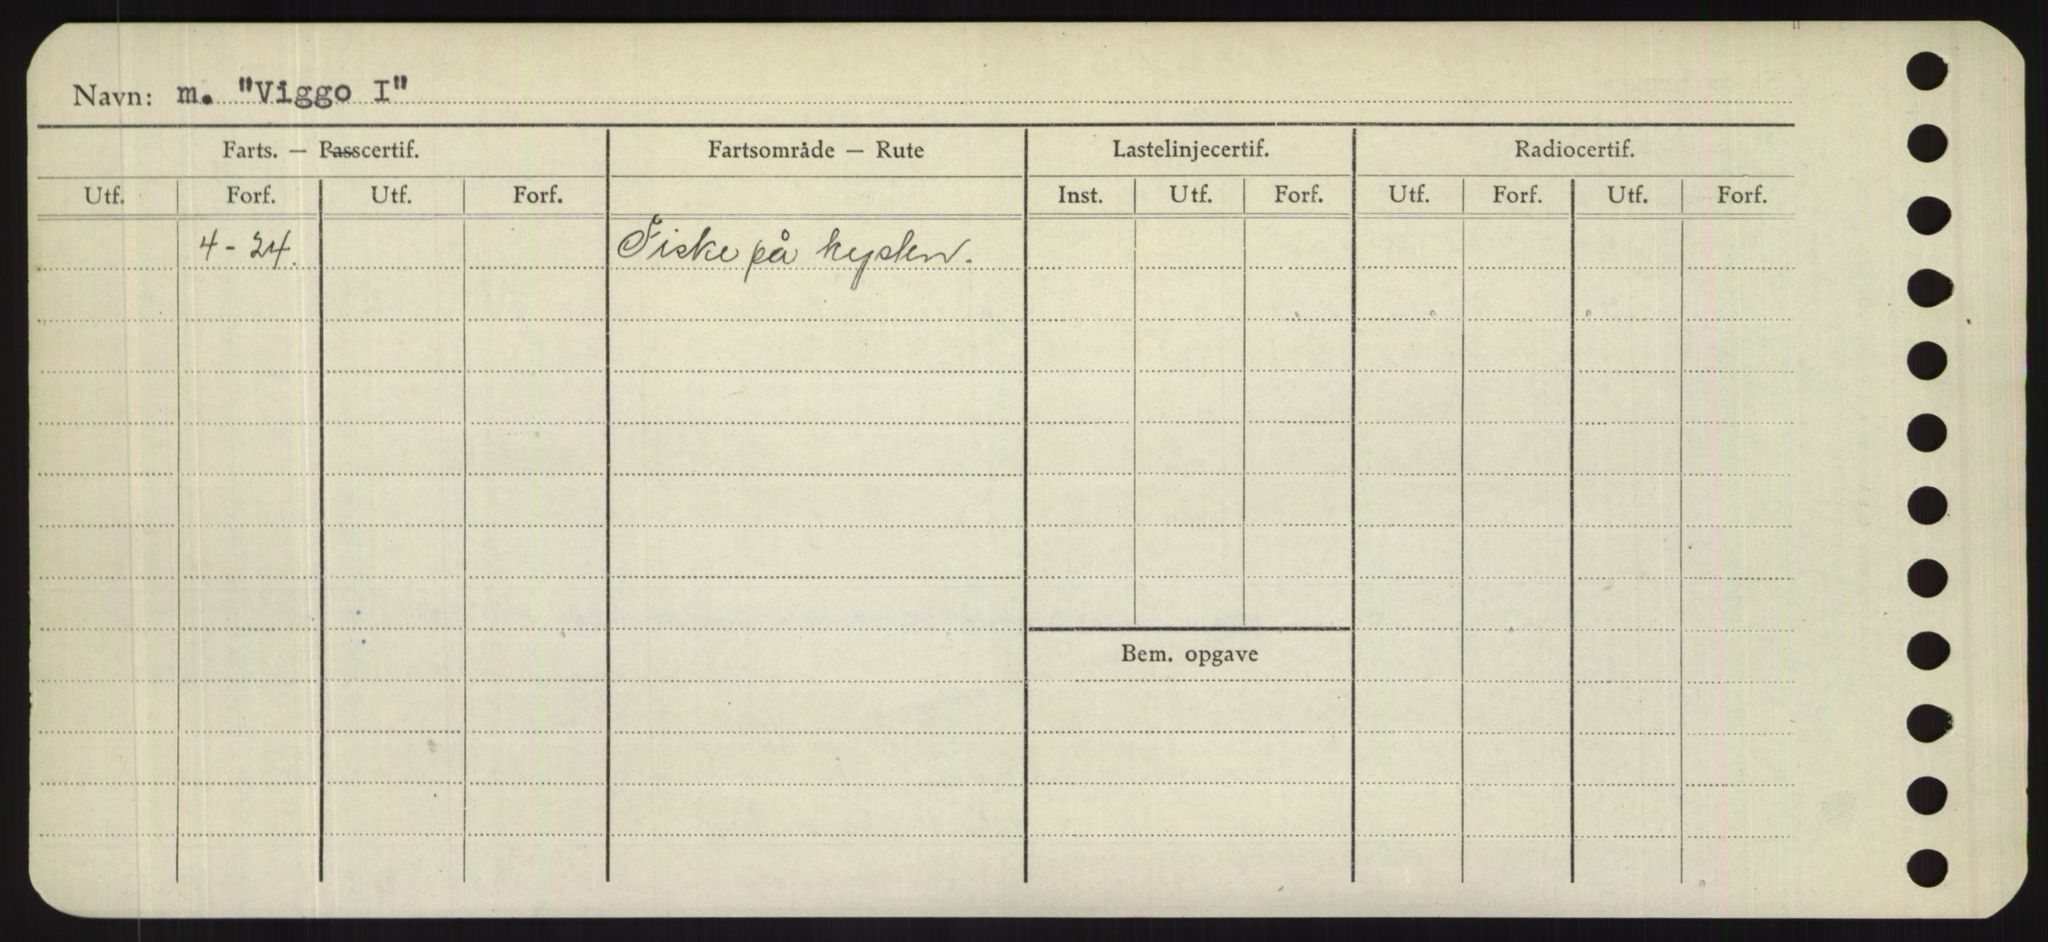 Navn: m. "Viggo I"
Farts. — Passcertif. Fartsområde — Rute Lastelinjecertif. Radiocertif.
Utf. Forf. Utf. Forf. Inst. Utf. Forf. Utf. Forf. Utf. Forf.
4-24. Fiske på kysten.
Bem. opgave